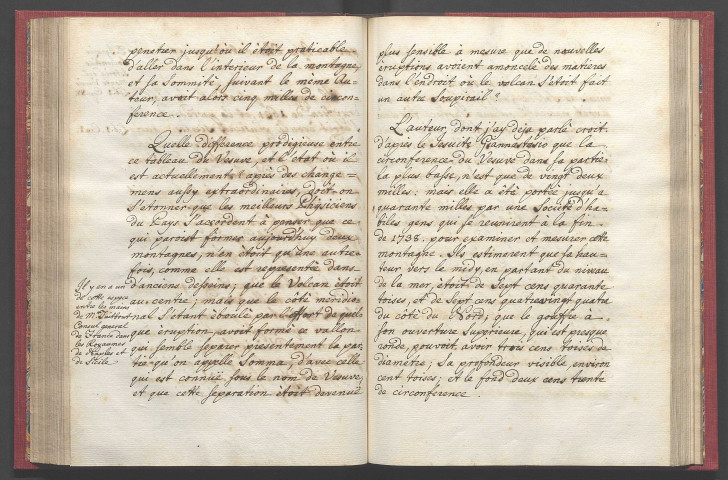 penetrer jusqu'où il étoit praticable
d'aller dans l'interieur de la montagne,
et sa Sommité suivant le même Au-
teur, avoit alors cinq milles de circon-
ference.
Quelle difference prodigieuse entre
ce tableau du Vesuve, et l'état où il
est actuellement! après des change-
mens aussy extraordinaires, doit-on
s'étonner que les meilleurs Phisiciens
du Pays s'accordent à penser que ce
qui paroist former aujourd'huy deux
montagnes, n'en étoit qu'une autre-
fois, comme elle est representée dans
d'anciens desseins; que le Volcan étoit
au centre; mais que le côté meridio-
nal s'étant éboulé par l'effort de quel-
que éruption, avoit formé ce vallon,
qui semble separer presentement la par-
tie qu'on appelle Somma, d'avec celle
qui est connüe sous le nom de Vesuve,
et que cette separation étoit devenüe
Il y en a un
de cette espece
entre les mains
de M.
Consul general
de France dans
les Royaumes
de Naples et
de Sicile.
plus sensible à mesure que de nouvelles
eruptions avoient amoncelé des matieres
dans l'endroit où le volcan s'étoit fait
un autre Soupirail?
L'auteur dont j'ay deja parlé croit
d'après le Jesuite que la
circonference du Vesuve dans sa partie
la plus basse, n'est que de vingt deux
milles: mais elle a été portée jusqu'a
quarante mille par une Societé d'ha-
biles gens qui se réunirent à la fin
de 1738. pour examiner et mesurer cette
montagne. Ils estimerent que sa hau-
teur vers le midy en partant du niveau
de la mer, étoit de Sept cens quarante
toises, et de Sept cens quatrevingt quatre
du côté du Nord; que le gouffre à
son ouverture Superieure, qui est presque
ronde, pouvoit avoir trois cens toises de
diametre; Sa profondeur visible, environ
cent toises; et le fond deux cens trente
de circonference.